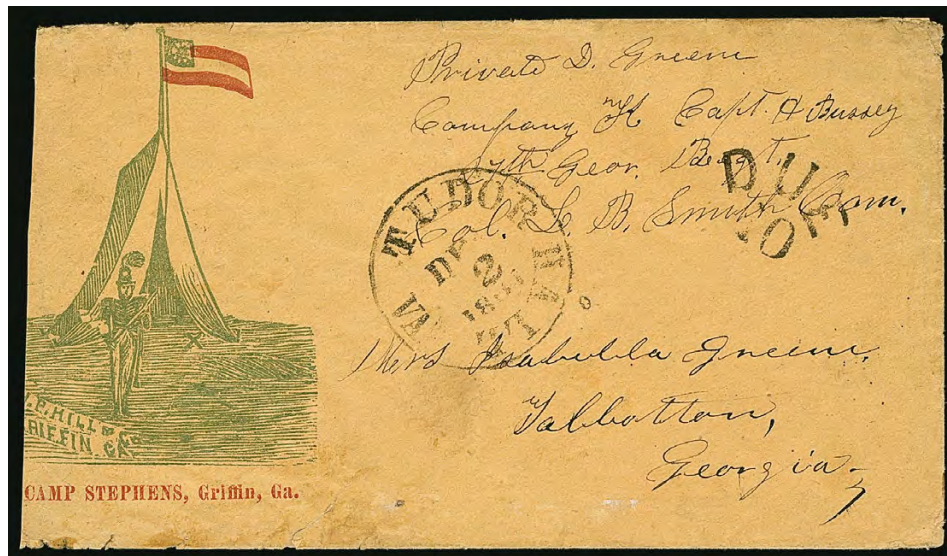 Private D. Greene
Company K Capt. H Bussey
27th Geor. Regt.
Col. L. B. Smith Com.
DUE
10
TUDOR HALL
DEC
2
VA
Mrs Isabella Greene.
Talbotton,
Georgia
P. HILL
GRIFFIN, GA
CAMP STEPHENS, Griffin, Ga.